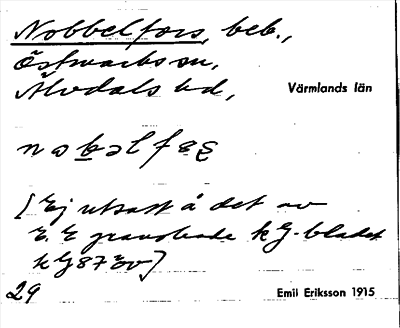 Nobbelfors, beb.,
Östmarks sn,
Älvdals hd,
Värmlands län
[Ej utsatt å det av
E. E granskade kg-bladet
kg 87 Öv]
29
Emil Eriksson 1915